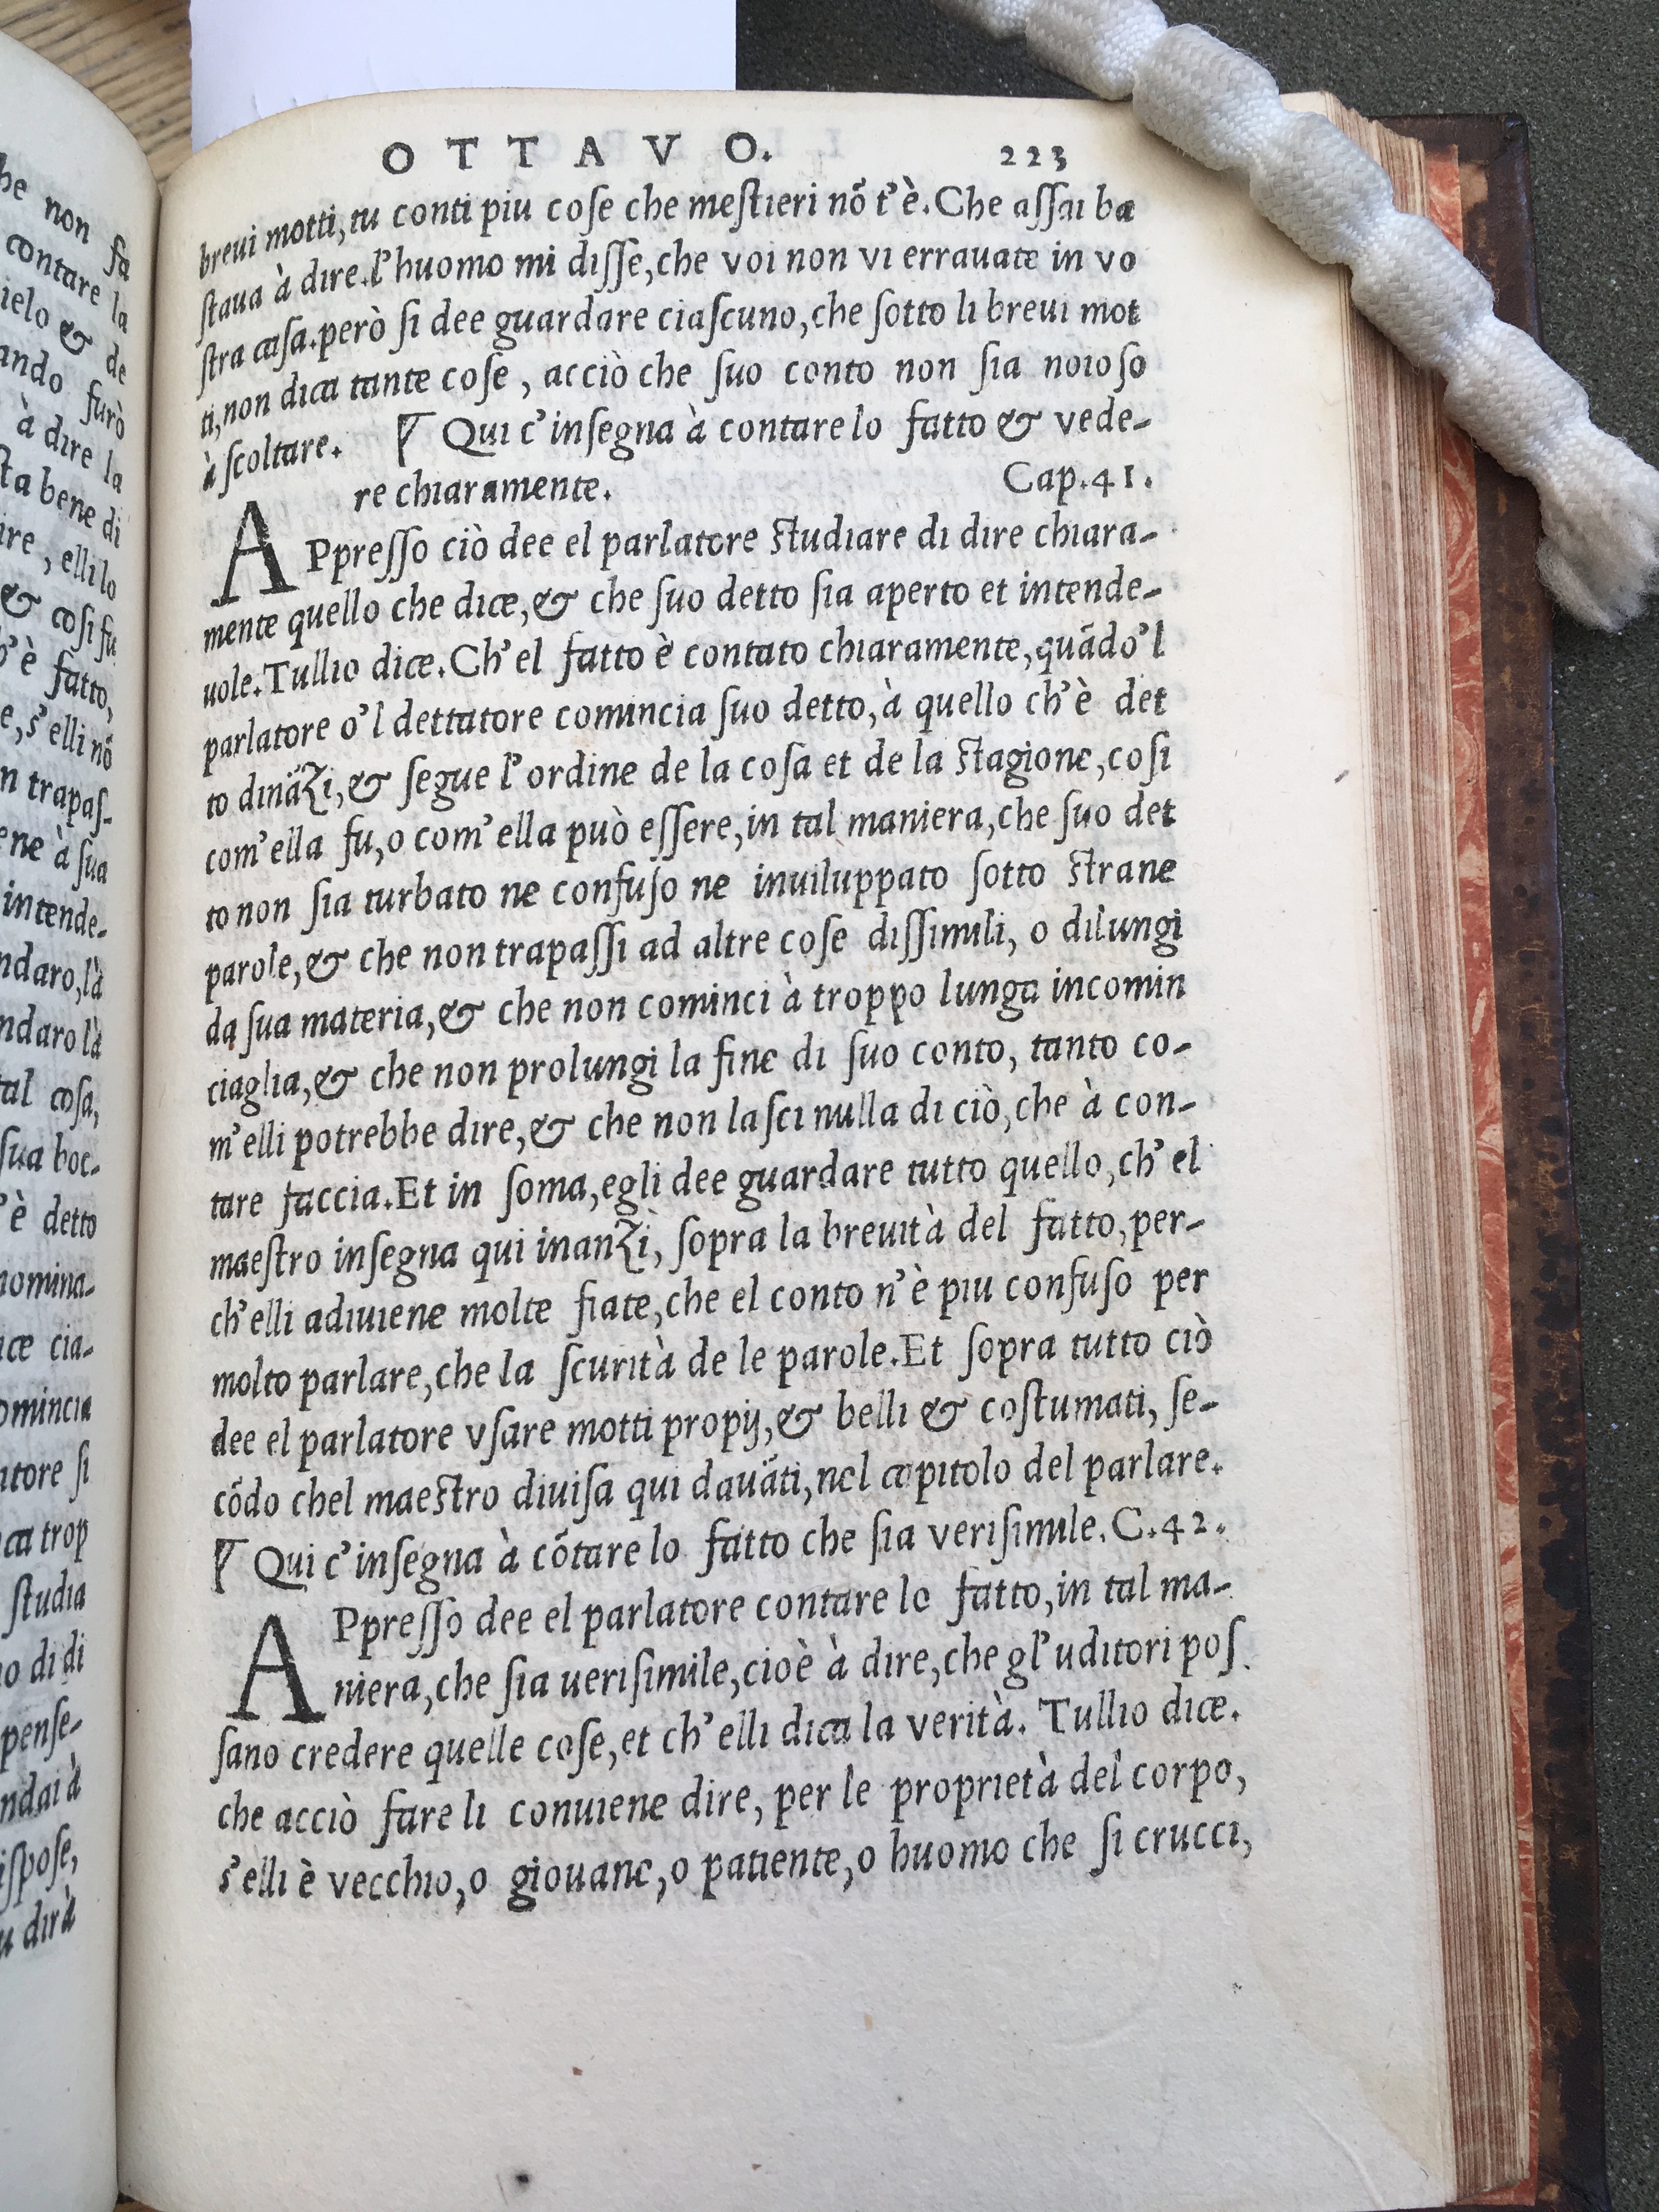 he non fa
contare la
ielo & de
ando furò
à dire la
sta bene di
ire, elli lo
& cosi fu
b'è fatto,
e, s'elli nõ
n trapas-
ene à sua
intende-
ndaro, là
ndaro là
tal cosa,
sua boc-
'è detto
nomina-
ice cia-
omincia
atore si
ca trop
studia
no di di
pense-
ndai à
ispose,
u dirà
OTTAVO. 223
breui motti, tu conti piu cose che mestieri nõ t'è. Che assai ba
staua à dire. l'huomo mi disse, che voi non vi errauate in vo
stra casa. però si dee guardare ciascuno, che sotto li breui mot
ti, non dica tante cose, acciò che suo conto non sia noioso
à scoltare. ¶ Qui c'insegna à contare lo fatto & vede-
re chiaramente. Cap. 41.
APpresso ciò dee el parlatore studiare di dire chiara-
mente quello che dice, & che suo detto sia aperto et intende-
uole. Tullio dice. Ch'el fatto è contato chiaramente, quãdo'l
parlatore o'l dettatore comincia suo detto, à quello ch'è det
to dinãzi, & segue l'ordine de la cosa et de la stagione, cosi
com'ella fu, o com'ella può essere, in tal maniera, che suo det
to non sia turbato ne confuso ne inuiluppato sotto strane
parole, & che non trapassi ad altre cose dissimili, o dilungi
da sua materia, & che non cominci à troppo lunga incomin
ciaglia, & che non prolungi la fine di suo conto, tanto co-
m'elli potrebbe dire, & che non lasci nulla di ciò, che à con-
tare faccia. Et in soma, egli dee guardare tutto quello, ch'el
maestro insegna qui inanzì, sopra la breuità del fatto, per-
ch'elli adiuiene molte fiate, che el conto n'è piu confuso per
molto parlare, che la scurità de le parole. Et sopra tutto ciò
dee el parlatore vsare motti propij, & belli & costumati, se-
cõdo chel maestro diuisa qui dauãti, nel capitolo del parlare.
¶ Qui c'insegna à cõtare lo fatto che sia verisimile. C. 42.
APpresso dee el parlatore contare lo fatto, in tal ma-
niera, che sia uerisimile, cioè à dire, che gl'uditori pos
sano credere quelle cose, et ch'elli dica la verità. Tullio dice.
che acciò fare li conuiene dire, per le proprietà del corpo,
s'elli è vecchio, o giouane, o patiente, o huomo che si crucci,